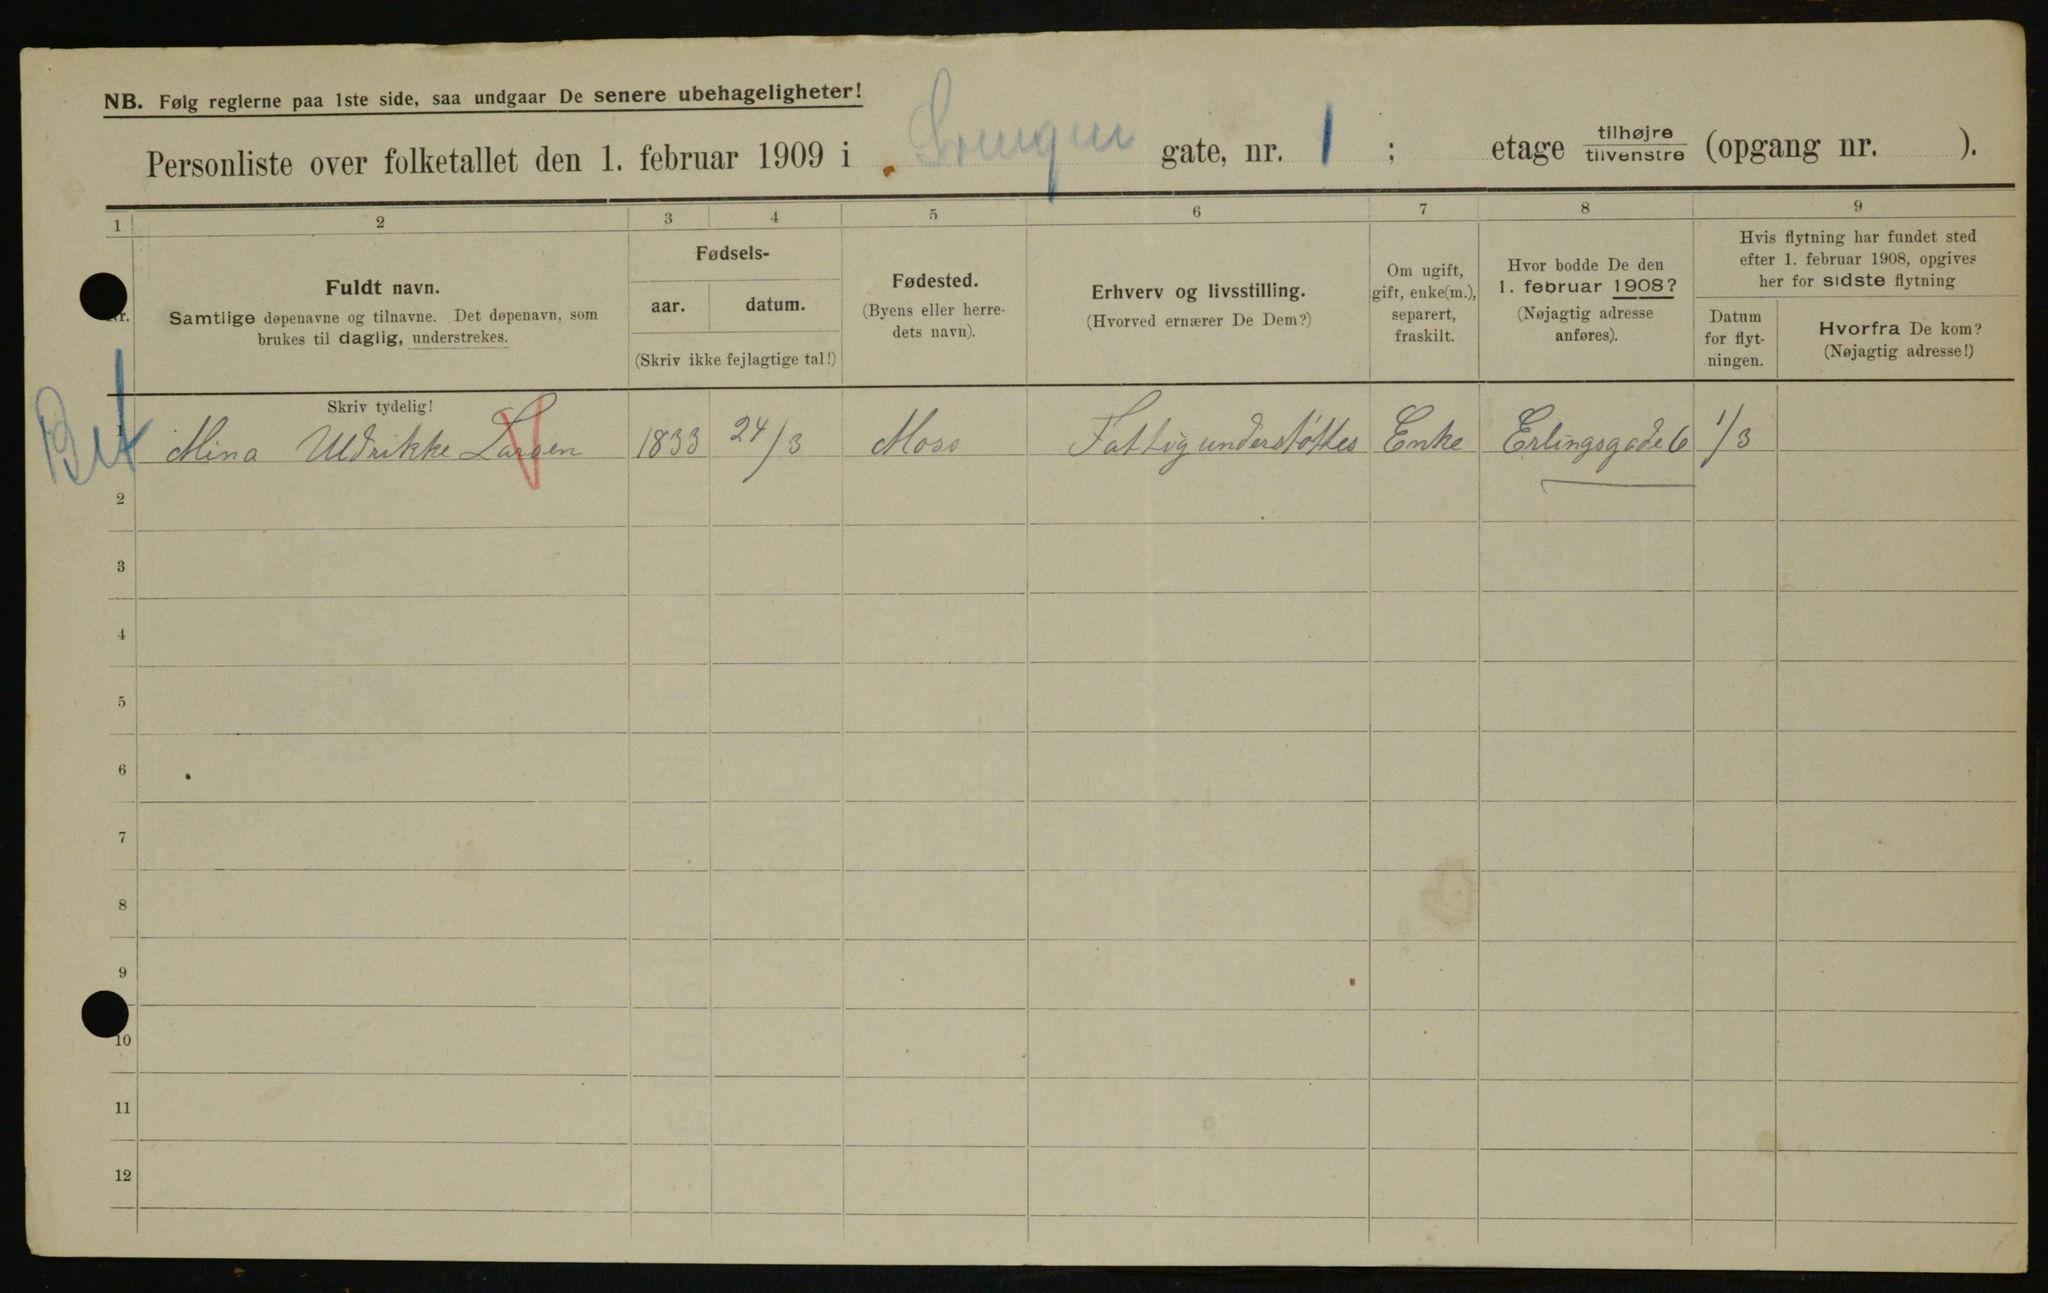 NB. Følg reglerne paa 1ste side, saa undgaar De senere ubehageligheter!
Personliste over folketallet den 1. februar 1909 i gate, nr. 1 ; etage tilhøjre/tilvenstre (opgang nr. ).
1 2 3 4 5 6 7 8 9
Nr.
Fuldt navn.
Samtlige døpenavne og tilnavne. Det døpenavn, som
brukes til daglig, understrekes.
Skriv tydelig!
Fødsels-
aar. datum.
(Skriv ikke fejlagtige tal!)
Fødested.
(Byens eller herre-
dets navn).
Erhverv og livsstilling.
(Hvorved ernærer De Dem?)
Om ugift,
gift, enke(m.),
separert,
fraskilt.
Hvor bodde De den
1. februar 1908?
(Nøjagtig adresse
anføres).
Hvis flytning har fundet sted
efter 1. februar 1908, opgives
her for sidste flytning
Datum
for flyt-
ningen.
Hvorfra De kom?
(Nøjagtig adresse!)
1 Mina Uldrikke Larsen 1833 24/3 Moss Fattigunderstøttes Enke Erlingsgade 6 1/3
2
3
4
5
6
7
8
9
10
11
12